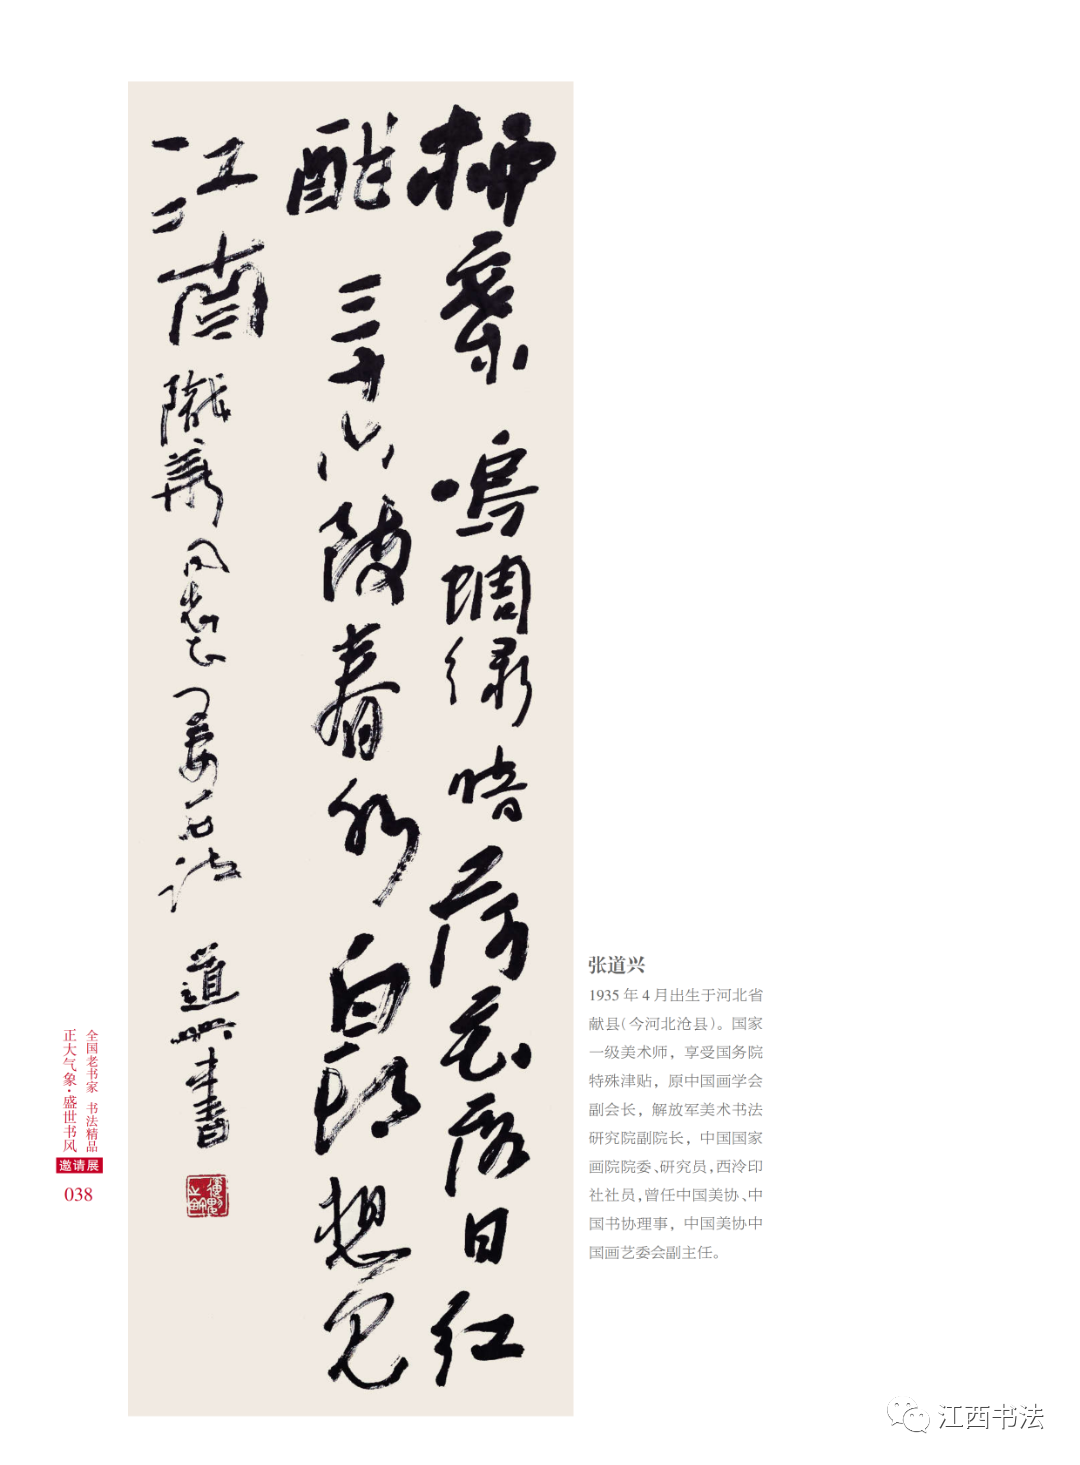 柳葉鳴蜩綠暗荷花落日紅
酣三十六陂春水白頭想見
江南
道興書
张道兴
1935 年 4 月出生于河北省
献县(今河北沧县)。国家
一级美术师，享受国务院
特殊津贴，原中国画学会
副会长，解放军美术书法
研究院副院长，中国国家
画院院委、研究员，西泠印
社社员，曾任中国美协、中
国书协理事，中国美协中
国画艺委会副主任。
全国老书家 书法精品
正大气象·盛世书风
邀请展
038
江西书法